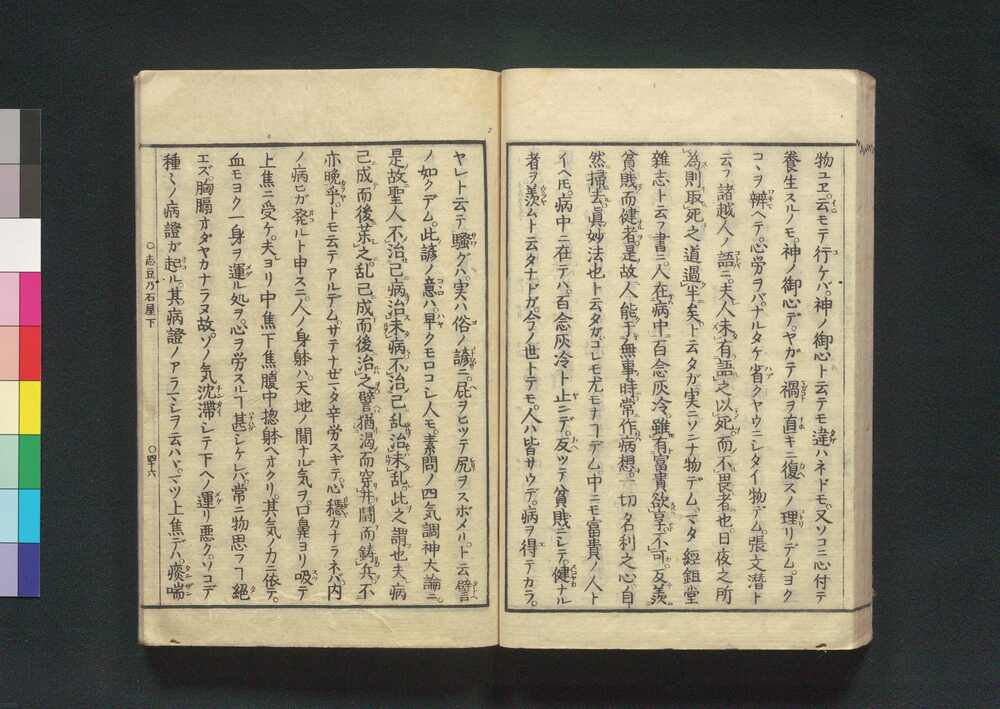 物ユヱ云モテ行ケバ神ノ御心ト云テモ違ハネドモ又ソコニ心付テ
養生スルノモ神ノ御心デヤガテ禍ヲ直キニ復スノ理リデムヨク
コヽヲ辨ヘテ心労ヲバナルタケ省クヤウニシタイ物デム張文潜ト
云フ諸越人ノ語ニ夫人未有語之以死而不畏者也日夜之所
為則取死之道過半矣ト云タガ実ニソンナ物デムマタ經鉏堂
雜志ト云フ書ニ人在病中百念灰冷雖有富貴欲享不可反羨
貧賎而健者是故人能于無事時常作病想一切名利之心自
然掃去真妙法也ト云タガコレモ尤モナコデム中ニモ富貴ノ人ト
イヘ𪜈病中ニ在テハ百念灰冷ト止ンデ反ツテ貧賎ニシテ健ナル
者ヲ羨ムト云タナドガ今ノ世トテモ人ハ皆サウデ病ヲ得テカラ
ヤレト云テ騒グハ実ハ俗ノ諺ニ屁ヲヒツテ尻ヲスボメリト云譬
ノ如クデム此諺ノ意ハ早クモロコシ人モ素問ノ四気調神大論ニ
是故聖人不治已病治未病不治已乱治未乱此之謂也夫病
已成而後薬之乱已成而後治之譬猶渇而穿井鬪而鋳兵不
亦晩乎トモ云テアルデムサテナゼマタ辛労スギテ心穏カナラネバ内
ノ病ヒガ発ルト申スニ人ノ身躰ハ天地ノ間ナル気ヲ口鼻ヨリ吸テ
上焦ニ受ケ夫ヨリ中焦下焦腹中揔躰ヘオクリ其気ノ力ニ依テ
血モヨク一身ヲ運ル処ヲ心ヲ労スルコ甚シケレバ常ニ物思フコ絶
エズ胸膈オダヤカナラヌ故ソノ気沈滞シテ下ヘノ運リ悪クソコデ
種〻ノ病證ガ起ル其病證ノアラマシヲ云ハヾマヅ上焦デハ痰喘
○志豆乃石屋下
○四十六